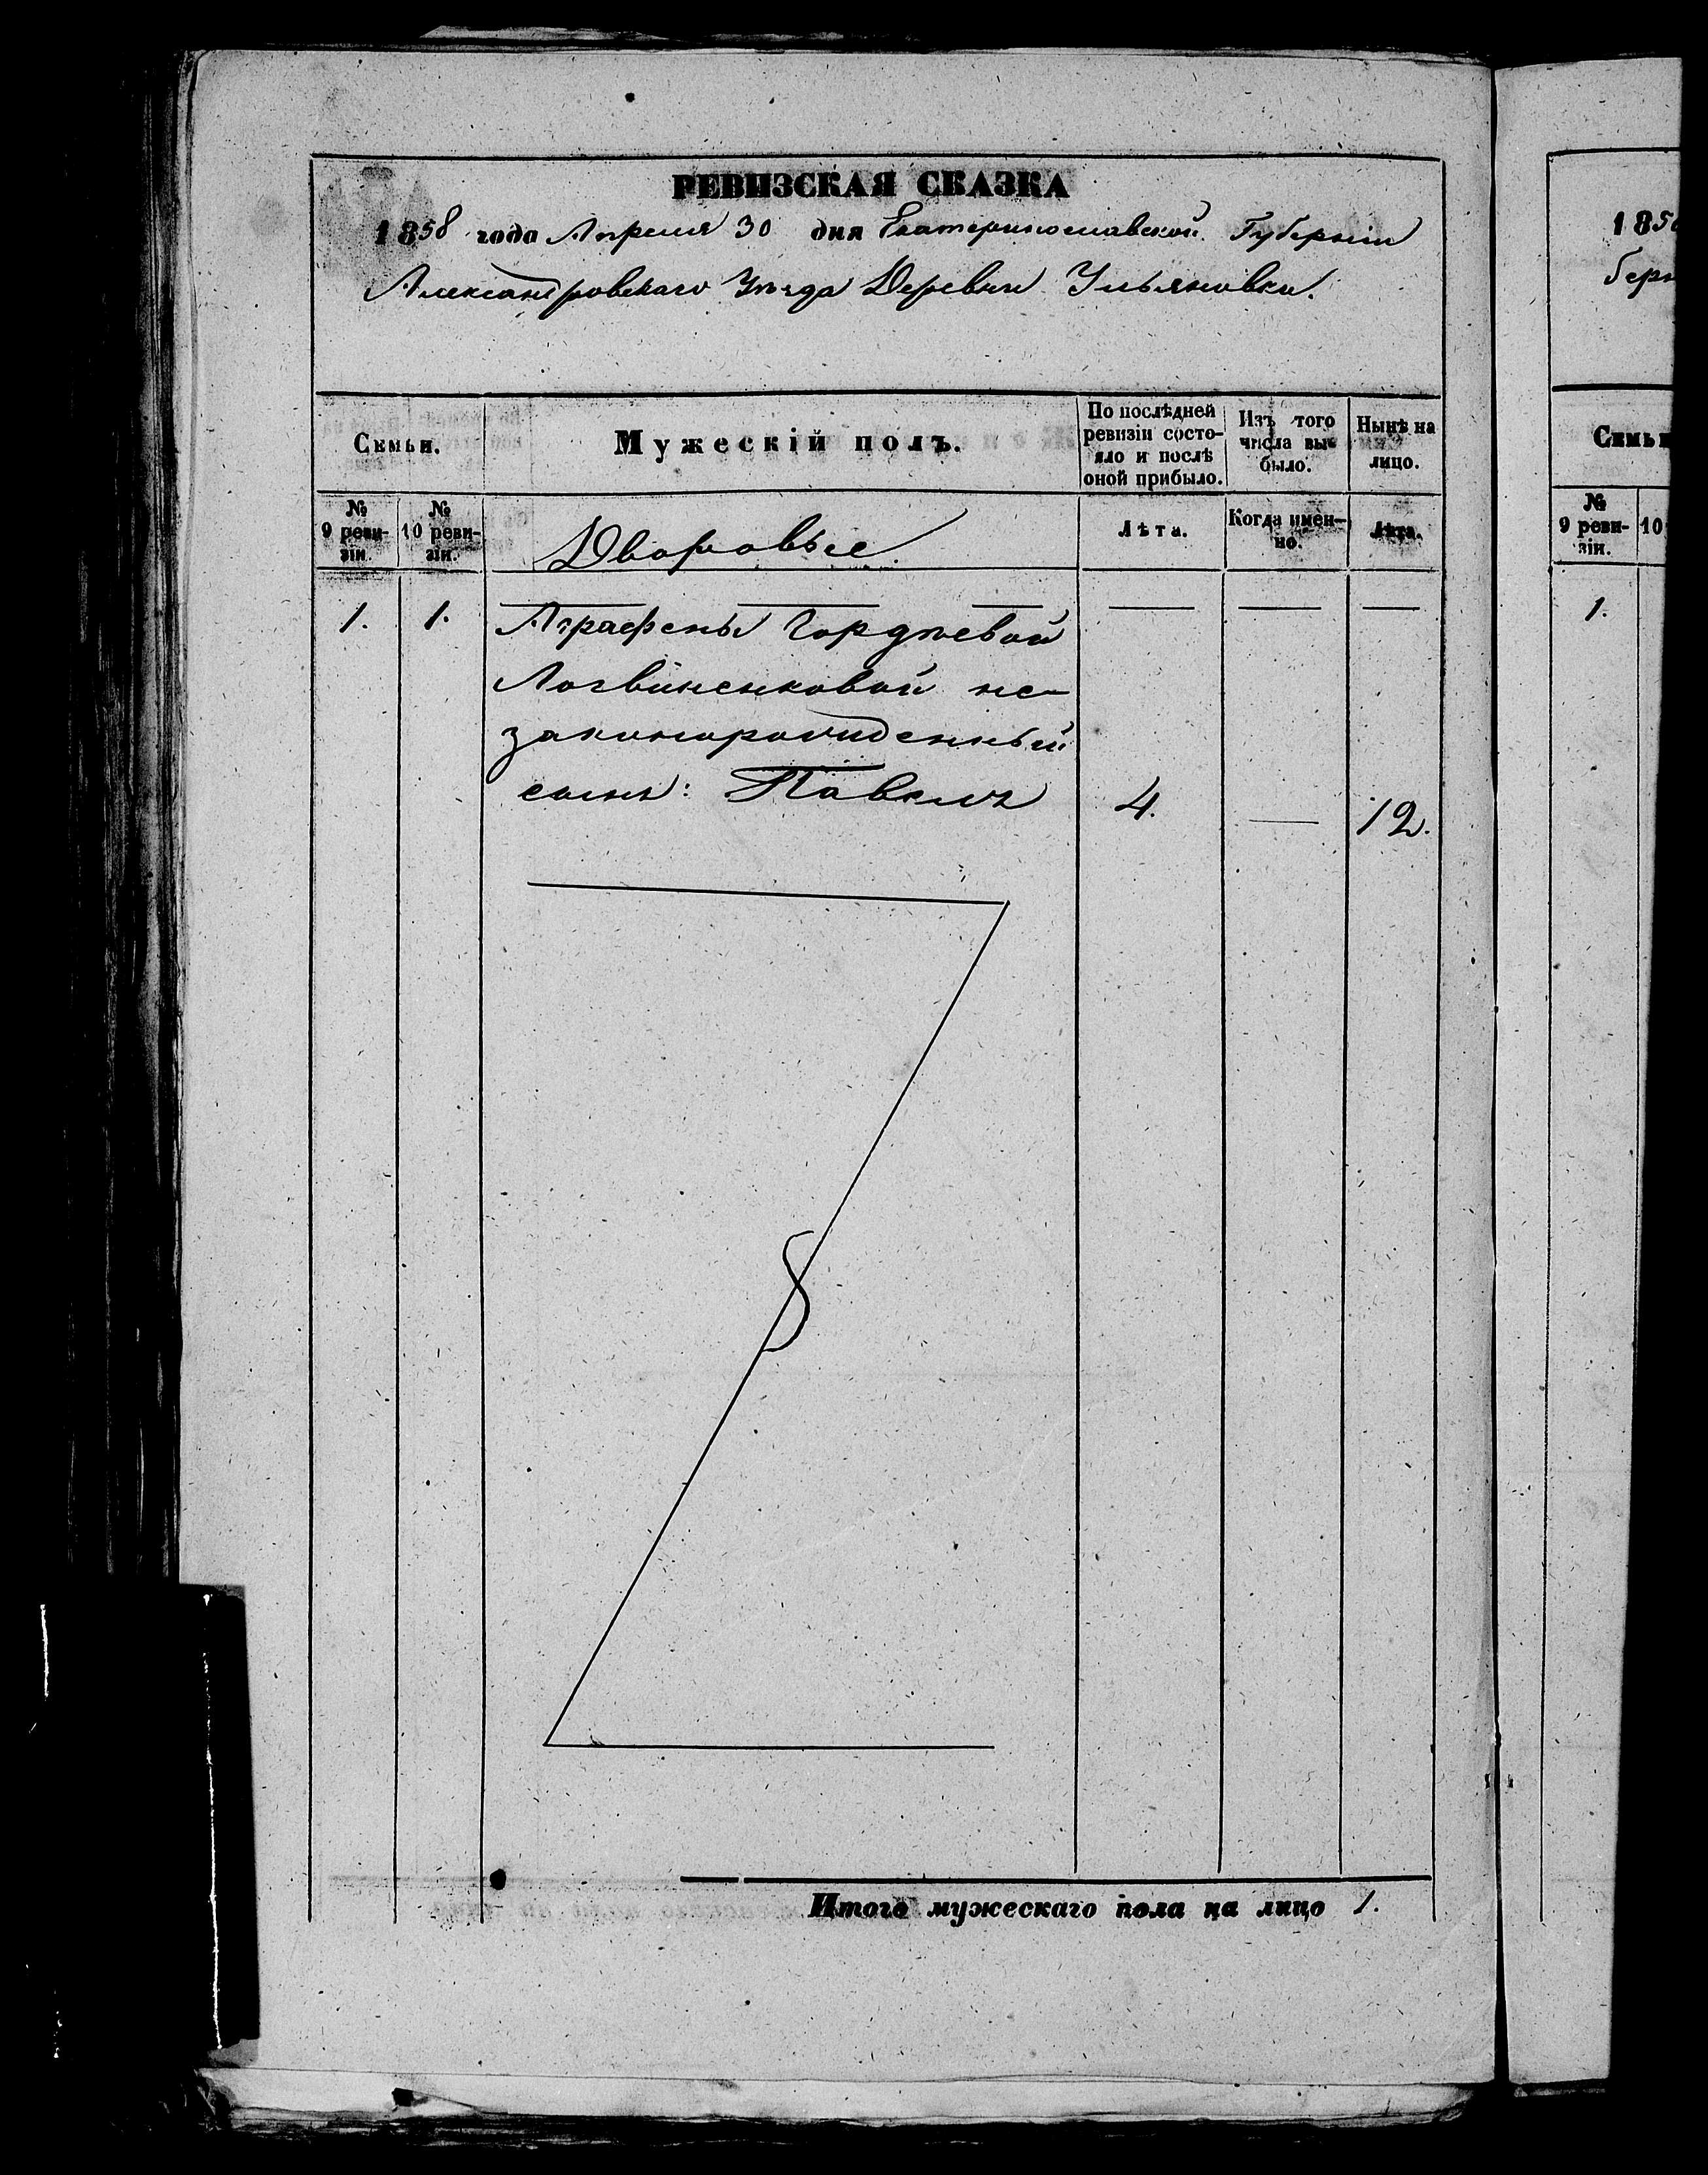 РЕВИЗСКАЯ СКАЗКА
1858 года Апреля 30 дня Екатеринославской Губернiи
Александровскаго Уѣзда Деревни Ульяновки.
Семьи.
Мужескiй полъ.
По послѣдней
ревизiи состо-
яло и послѣ
оной прибыло.
Изъ того
числа вы-
было.
Нынѣ на
лицо.
№
9 реви-
зiи.
№
10 реви-
зiи.
Дворовые
Лѣта.
Когда имен-
но.
Лѣта.
1. 1. Аграфены Гордѣевой
Логвиненковой не-
законорожденный
сынъ: Павелъ 4. — 12.
Итого мужескаго пола на лицо 1.
185
берн
Семьи
№
9 реви-
зiи.
10
1.